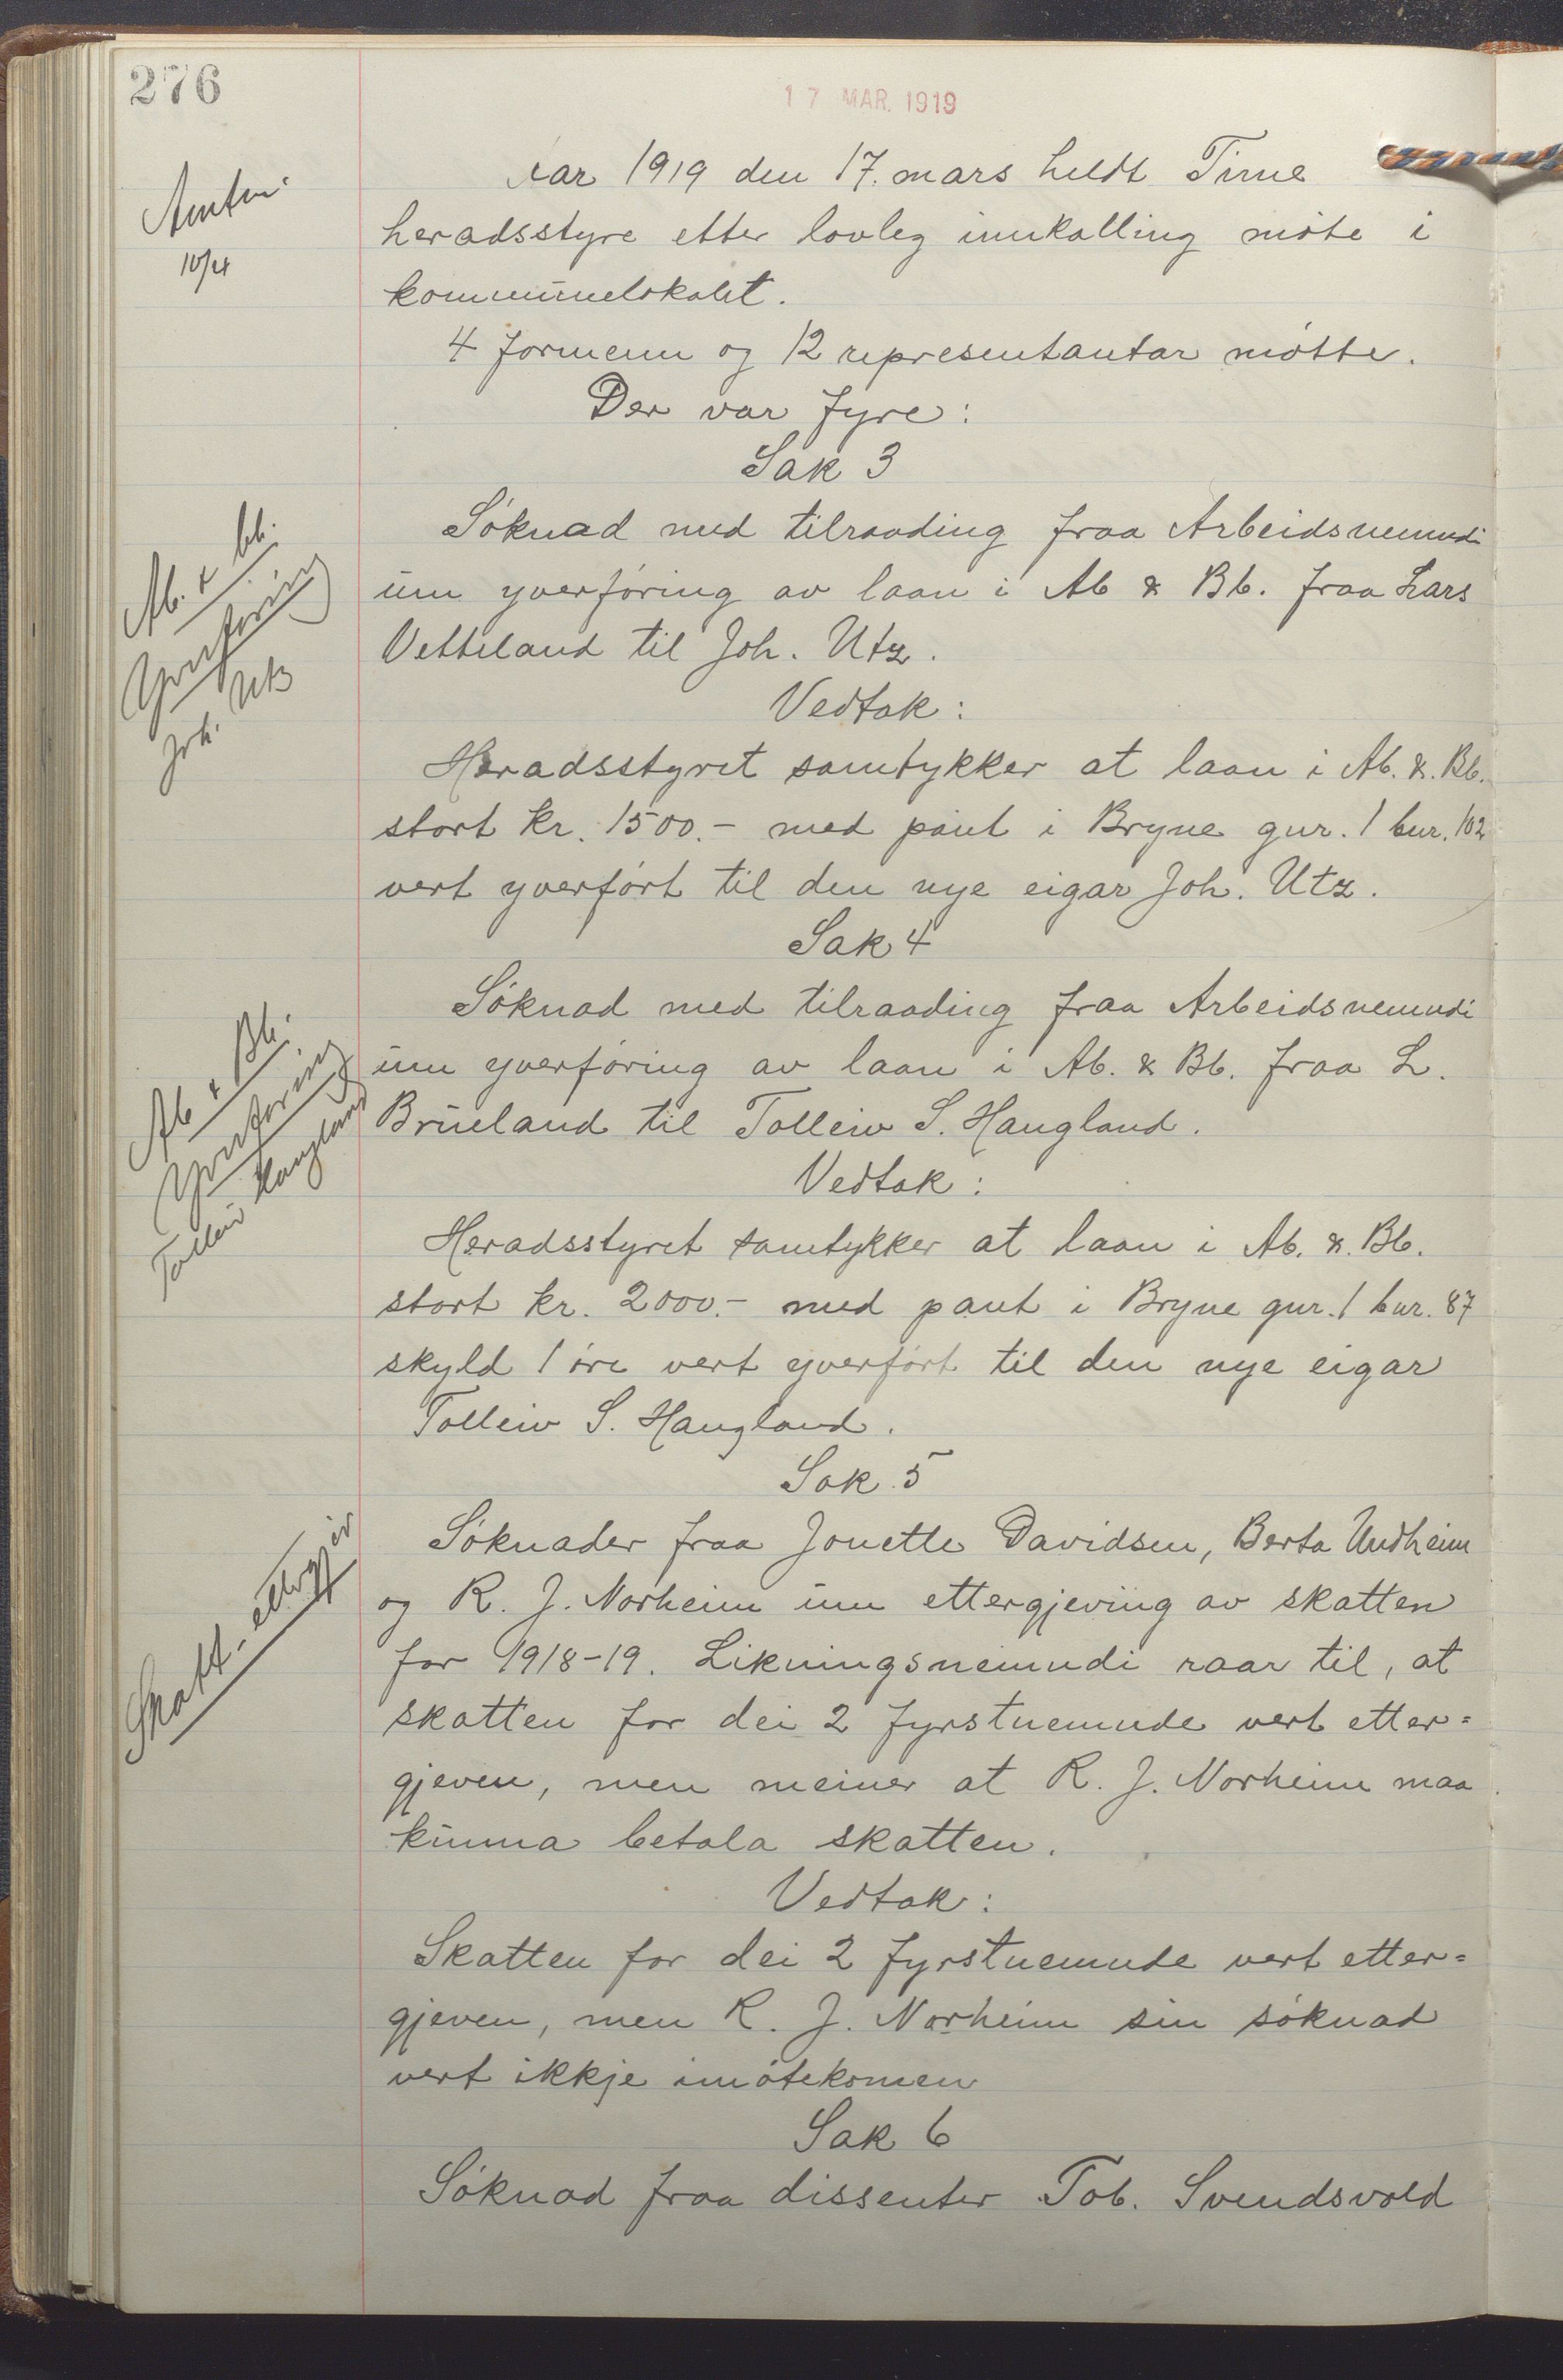 276
17 MAR. 1919
Aar 1919 den 17. mars heldt Time
heradsstyre etter lovleg innkalling móte i
kommunelokalet.
4 formenn og 12 representantar mótte.
Der var fyre:
Sak 3
Sóknad med tilraading fraa Arbeidsnemndi
um yverfóring av laan i Ab & Bb. fraa Lars
Vetteland til Joh. Utz.
Vedtak:
Heradsstyret samtykker at laan i Ab. &. Bb.
stort kr. 1500.- med pant i Bryne gnr. 1 bnr. 102
vert yverfórt til den nye eigar Joh. Utz.
Sak 4
Sóknad med tilraading fraa Arbeidsnemndi
um yverfóring av laan i Ab. & Bb. fraa L.
Brueland til Tolleiv S. Haugland.
Vedtak:
Heradsstyret samtykker at laan i Ab. &. Bb.
stort kr. 2000.- med pant i Bryne gnr. 1 bnr. 87
skyld 1 óre vert yverfórt til den nye eigar
Tolleiv S. Haugland.
Sak 5
Sóknader fraa Jonette Davidsen, Berta Undheim
og R. J. Norheim um ettergjeving av skatten
for 1918-19. Likningsnemndi raar til, at
skatten for dei 2 fyrstnemnde vert etter=
gjeven, men meiner at R. J. Norheim maa
kunna betala skatten.
Vedtak:
Skatten for dei 2 fyrstnemnde vert etter=
gjeven, men R. J. Norheim sin sóknad
vert ikkje imótekomen
Sak 6
Sóknad fraa dissenter Tob. Svendsvold
10/4
Ab. & bb.
Yverfóring
Joh. Utz
Ab & Bb.
Yverfóring
Tolleiv Haugland
Skatt-ettergjev